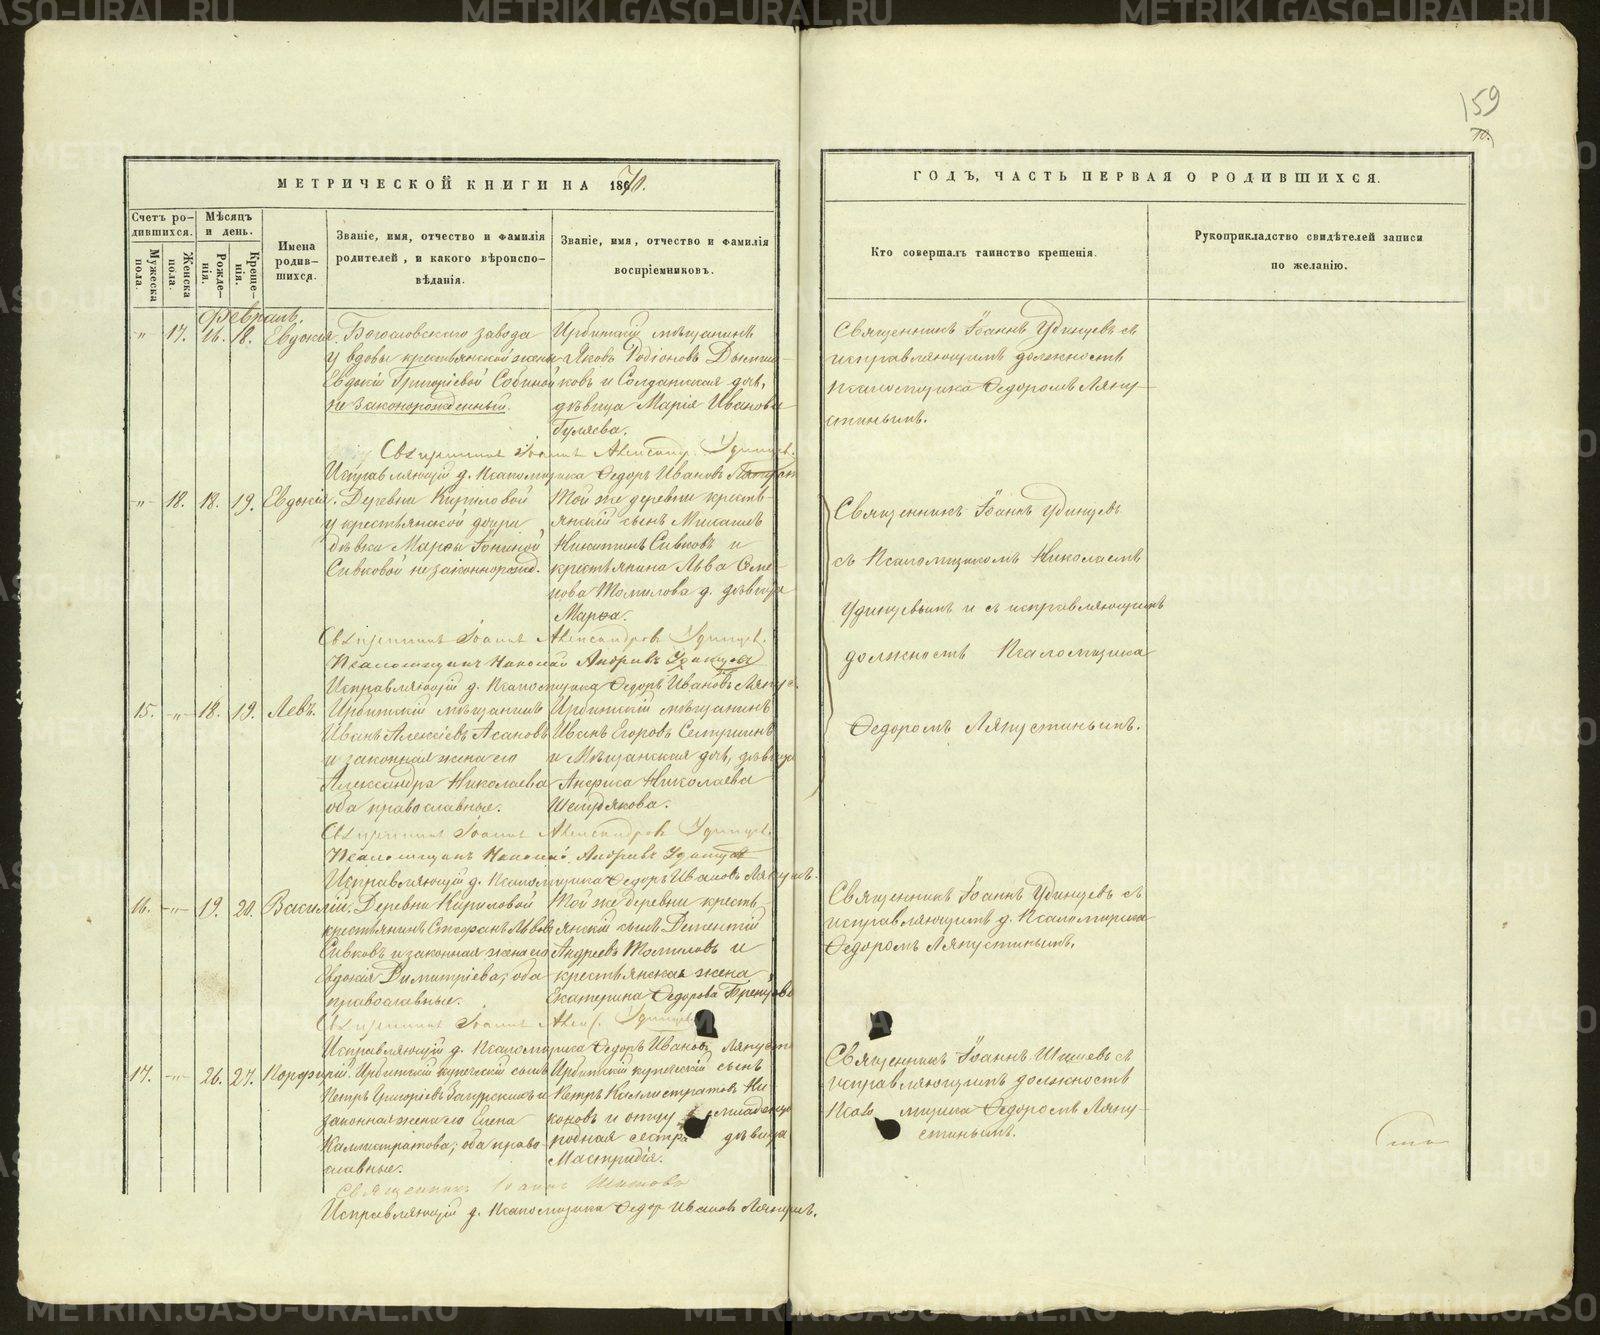 METRIKI.GASO-URAL.RU
159
МЕТРИЧЕСКОЙ КНИГИ НА 1870.
ГОДЪ, ЧАСТЬ ПЕРВАЯ О РОДИВШИХСЯ.
Счетъ родившихся.
Мужеска пола.
Женска пола.
Мѣсяцъ и день.
Рожденія.
Крещенія.
Имена родившихся.
Званіе, имя, отчество и фамилія родителей, и какого вѣроисповѣданія.
Званіе, имя, отчество и фамилія воспріемниковъ.
Кто совершалъ таинство крещенія.
Рукоприкладство свидѣтелей записи по желанію.
Февраль.
„ 17. 16. 18. Евдокія.
Богословскаго завода
у вдовы крестьянской жены
Евдокіи Григоріевой Собиной
незаконорожденный.
Ирбитскій мѣщанинъ
Яковъ Родіоновъ
и Солдатская дочь,
дѣвица Марія Иванова
Гуляева.
Священникъ Іоаннъ Удинцевъ съ
исправляющимъ должность
псаломщика Ѳедоромъ Ляпу-
стинымъ.
Священникъ Іоаннъ Александр. Удинцев.
Исправляющій д. Псаломщика Ѳедоръ Ивановъ
„ 18. 18. 19. Евдокія.
Деревни Кириловой
у крестьянской дочери
дѣвки Марѳы
Сивковой незаконнорожд.
Той же деревни кресть-
янскій сынъ Михаилъ
Никитинъ Сивковъ и
крестьянина Льва Семе-
нова Томилова д. дѣвица
Марѳа.
Священникъ Іоаннъ Удинцевъ
съ Псаломщикомъ Николаемъ
Удинцевымъ и съ исправляющимъ
должность Псаломщика
Ѳедоромъ Ляпустинымъ.
Священникъ Іоаннъ Александровъ Удинцев.
Псаломщикъ Николай Андреевъ Удинцевъ
Исправляющій д. Псаломщика Ѳедоръ Ивановъ Ляпус.
15. „ 18. 19. Левъ.
Ирбитскій мѣщанинъ
Иванъ Алексіевъ Асановъ
и законная жена его
Александра Николаева
оба православные.
Ирбитскій мѣщанинъ
Иванъ Егоровъ
и Мѣщанская дочь, дѣвица
Анфиса Николаева
Шелудякова.
Священникъ Іоаннъ Александровъ Удинцев.
Псаломщикъ Николай Андреевъ Удинцевъ
Исправляющій д. Псаломщика Ѳедоръ Ивановъ
16. „ 19. 20. Василій.
Деревни Кириловой
крестьянинъ Стефанъ Львовъ
Сивковъ и законная жена его
Евдокія Димитріева, оба
православные.
Той же деревни кресть-
янскій сынъ Дементій
Андреевъ Томиловъ и
крестьянская жена
Екатерина Ѳедорова
Священникъ Іоаннъ Удинцевъ съ
исправляющимъ д. Псаломщика
Ѳедоромъ Ляпустинымъ.
Священникъ Іоаннъ Алек. Удинцевъ
Исправляющій д. Псаломщика Ѳедоръ Ивановъ
17. „ 26. 27. Порфирій.
Ирбитскій купеческій сынъ
Петръ Григоріевъ и
законная жена его Елена
Калистратова, оба право-
славные.
Ирбитскій купеческій сынъ
Петръ Каллистратовъ Ни-
коновъ и отцу младенца
родная сестра дѣвица
Мастридія.
Священникъ Іоаннъ Шишевъ съ
исправляющимъ должность
Ѳедоромъ Ляпу-
стинымъ.
Священникъ Іоаннъ Шишевъ
Исправляющій д. Псаломщика Ѳедор Ивановъ